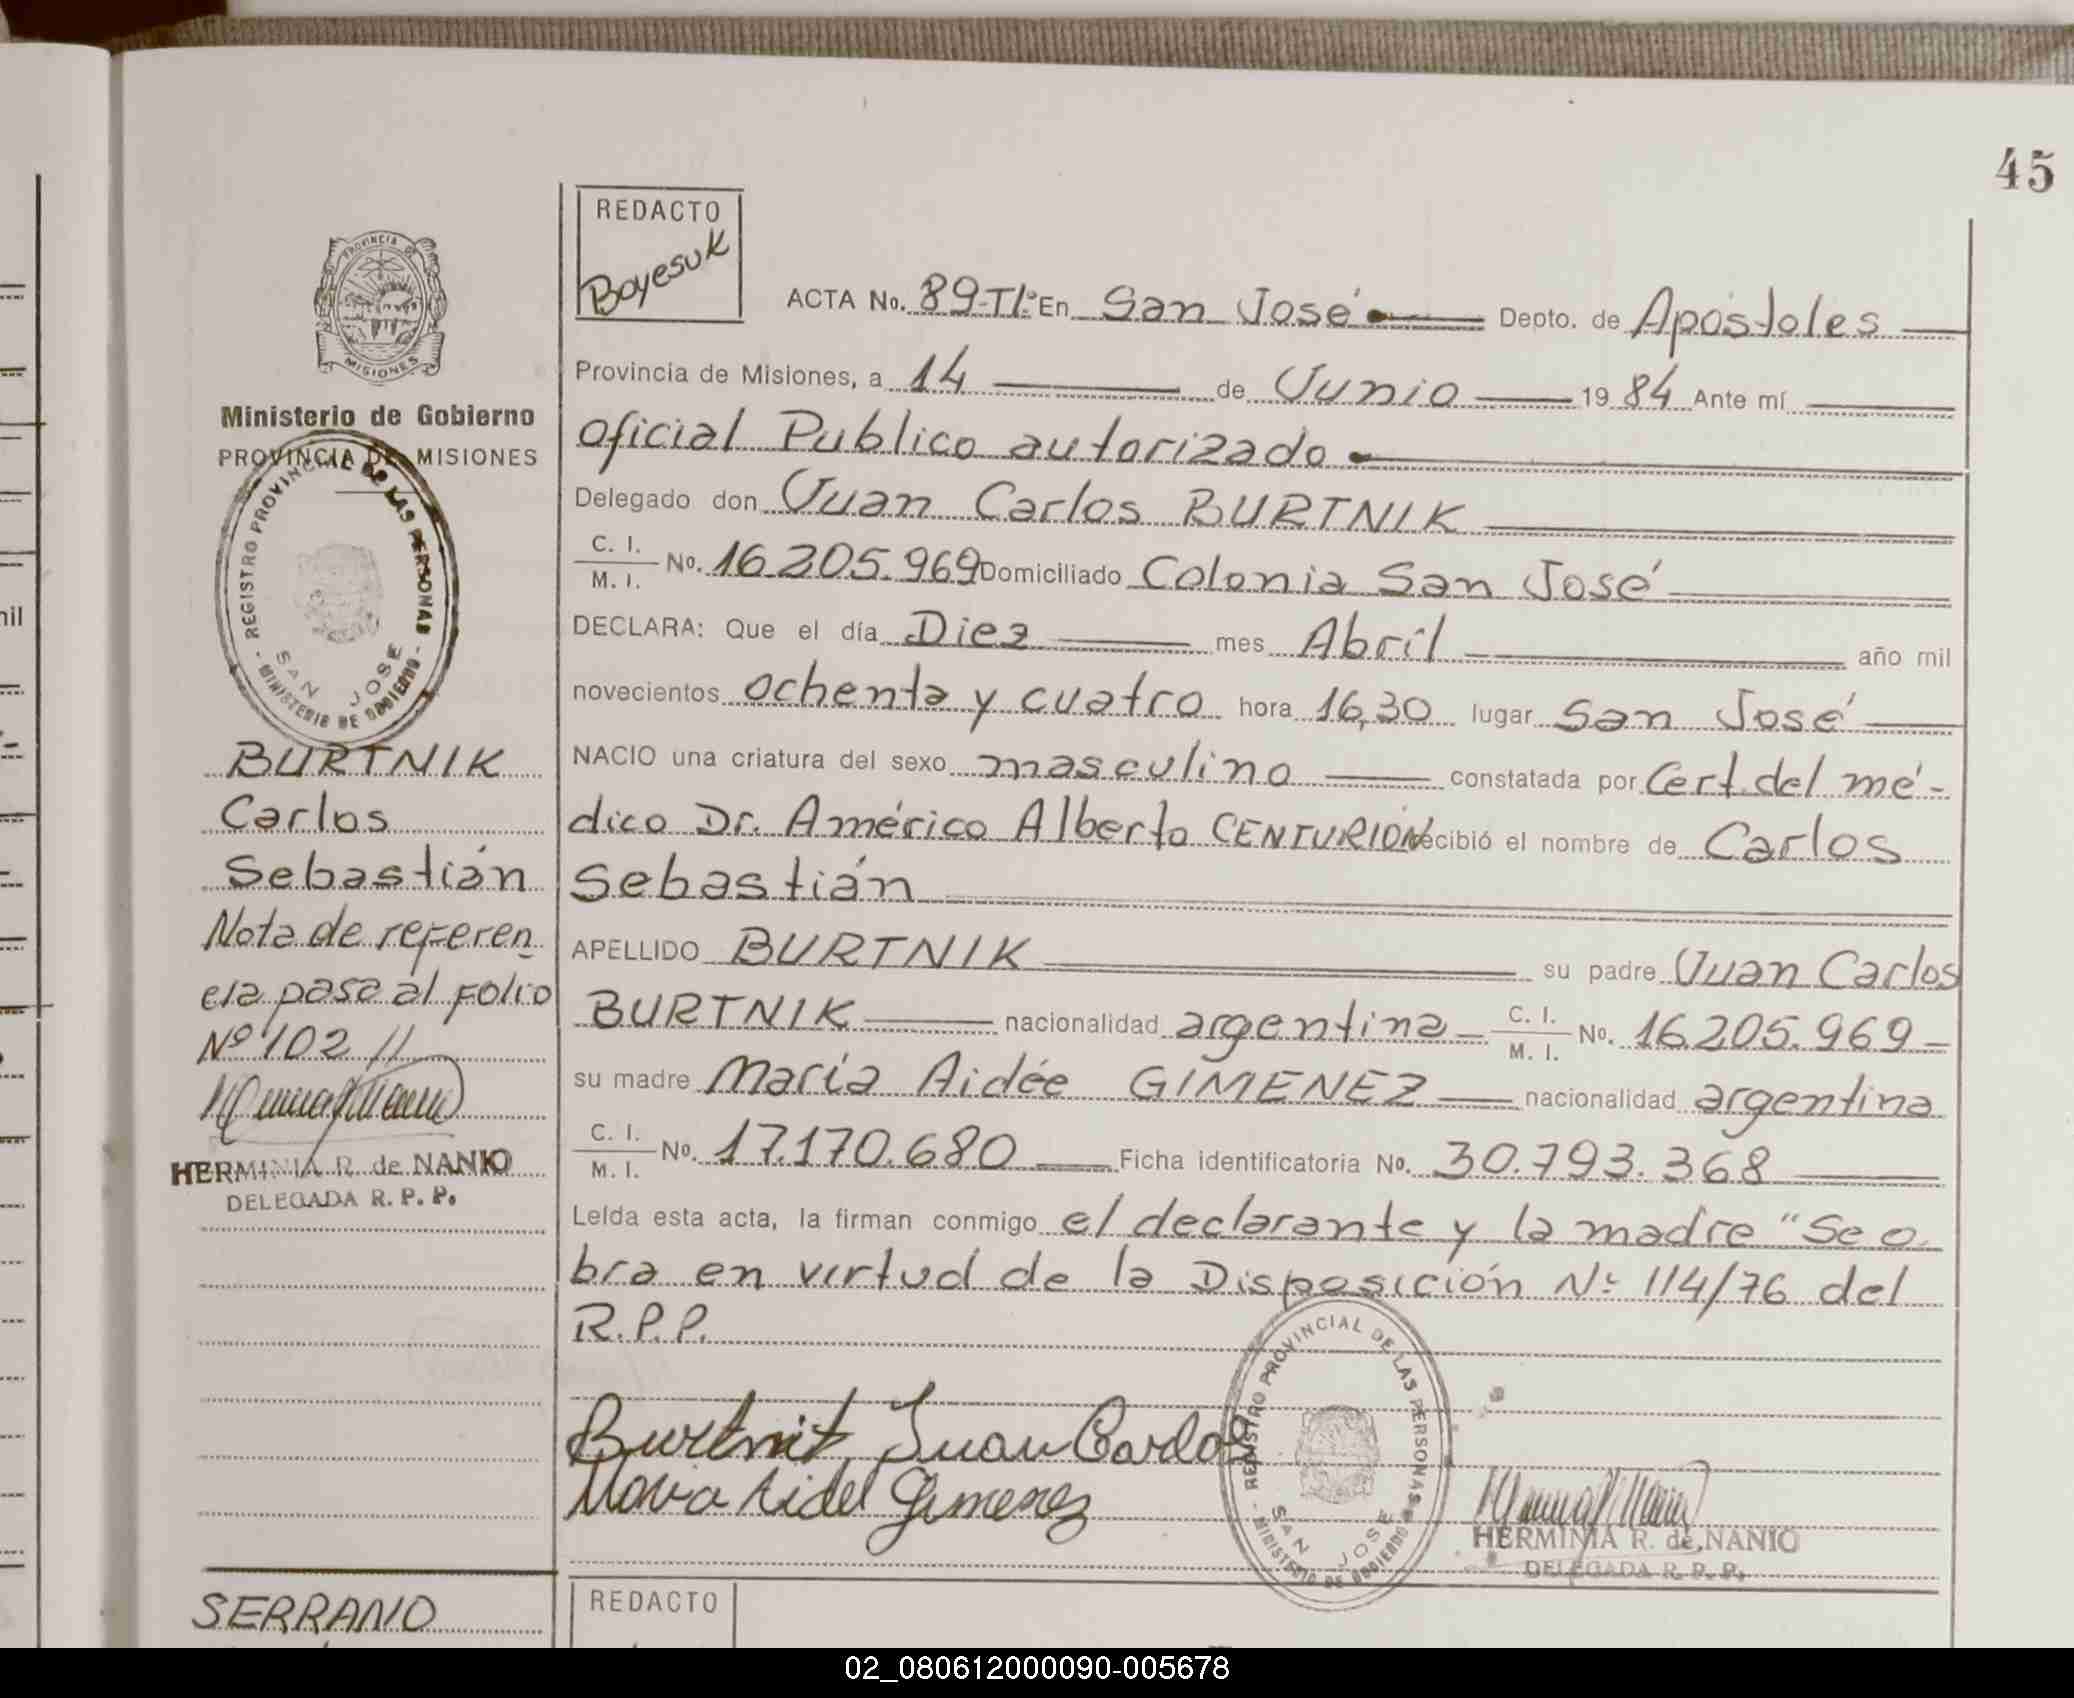 45
REDACTO
Boyesuk
ACTA No. 89-TI: En San José Depto. de Apóstoles
Provincia de Misiones, a 14 de Junio 1984 Ante mí
oficial Publico autorizado
Delegado don Juan Carlos BURTNIK
C. I.
M. I. No. 16.205.969 Domiciliado Colonia San José
DECLARA: Que el día Diez mes Abril año mil
novecientos ochenta y cuatro hora 16,30 lugar San José
NACIO una criatura del sexo masculino constatada por Cert. del mé-
dico Dr. Américo Alberto CENTURIÓN recibió el nombre de Carlos
Sebastián
APELLIDO BURTNIK su padre Juan Carlos
BURTNIK nacionalidad argentina C. I.
M. I. No. 16.205.969
su madre María Aidée GIMENEZ nacionalidad argentina
C. I.
M. I. No. 17.170.680 Ficha identificatoria No. 30.793.368
Leída esta acta, la firman conmigo el declarante y la madre "Se o
bra en virtud de la Disposición Nº 114/76 del
R.P.P.
Burtnik Juan Carlos
Maria Aidee Gimenez
REGISTRO PROVINCIAL DE LAS PERSONAS
SAN JOSE
MINISTERIO DE GOBIERNO
HERMINIA R. de NANIO
DELEGADA R. P. P.
PROVINCIA DE
MISIONES
Ministerio de Gobierno
PROVINCIA DE MISIONES
REGISTRO PROVINCIAL DE LAS PERSONAS
SAN JOSE
MINISTERIO DE GOBIERNO
BURTNIK
Carlos
Sebastián
Nota de referen
cia pasa al folio
Nº 102 //
HERMINIA R. de NANIO
DELEGADA R. P. P.
SERRANO
REDACTO
nil
02_080612000090-005678